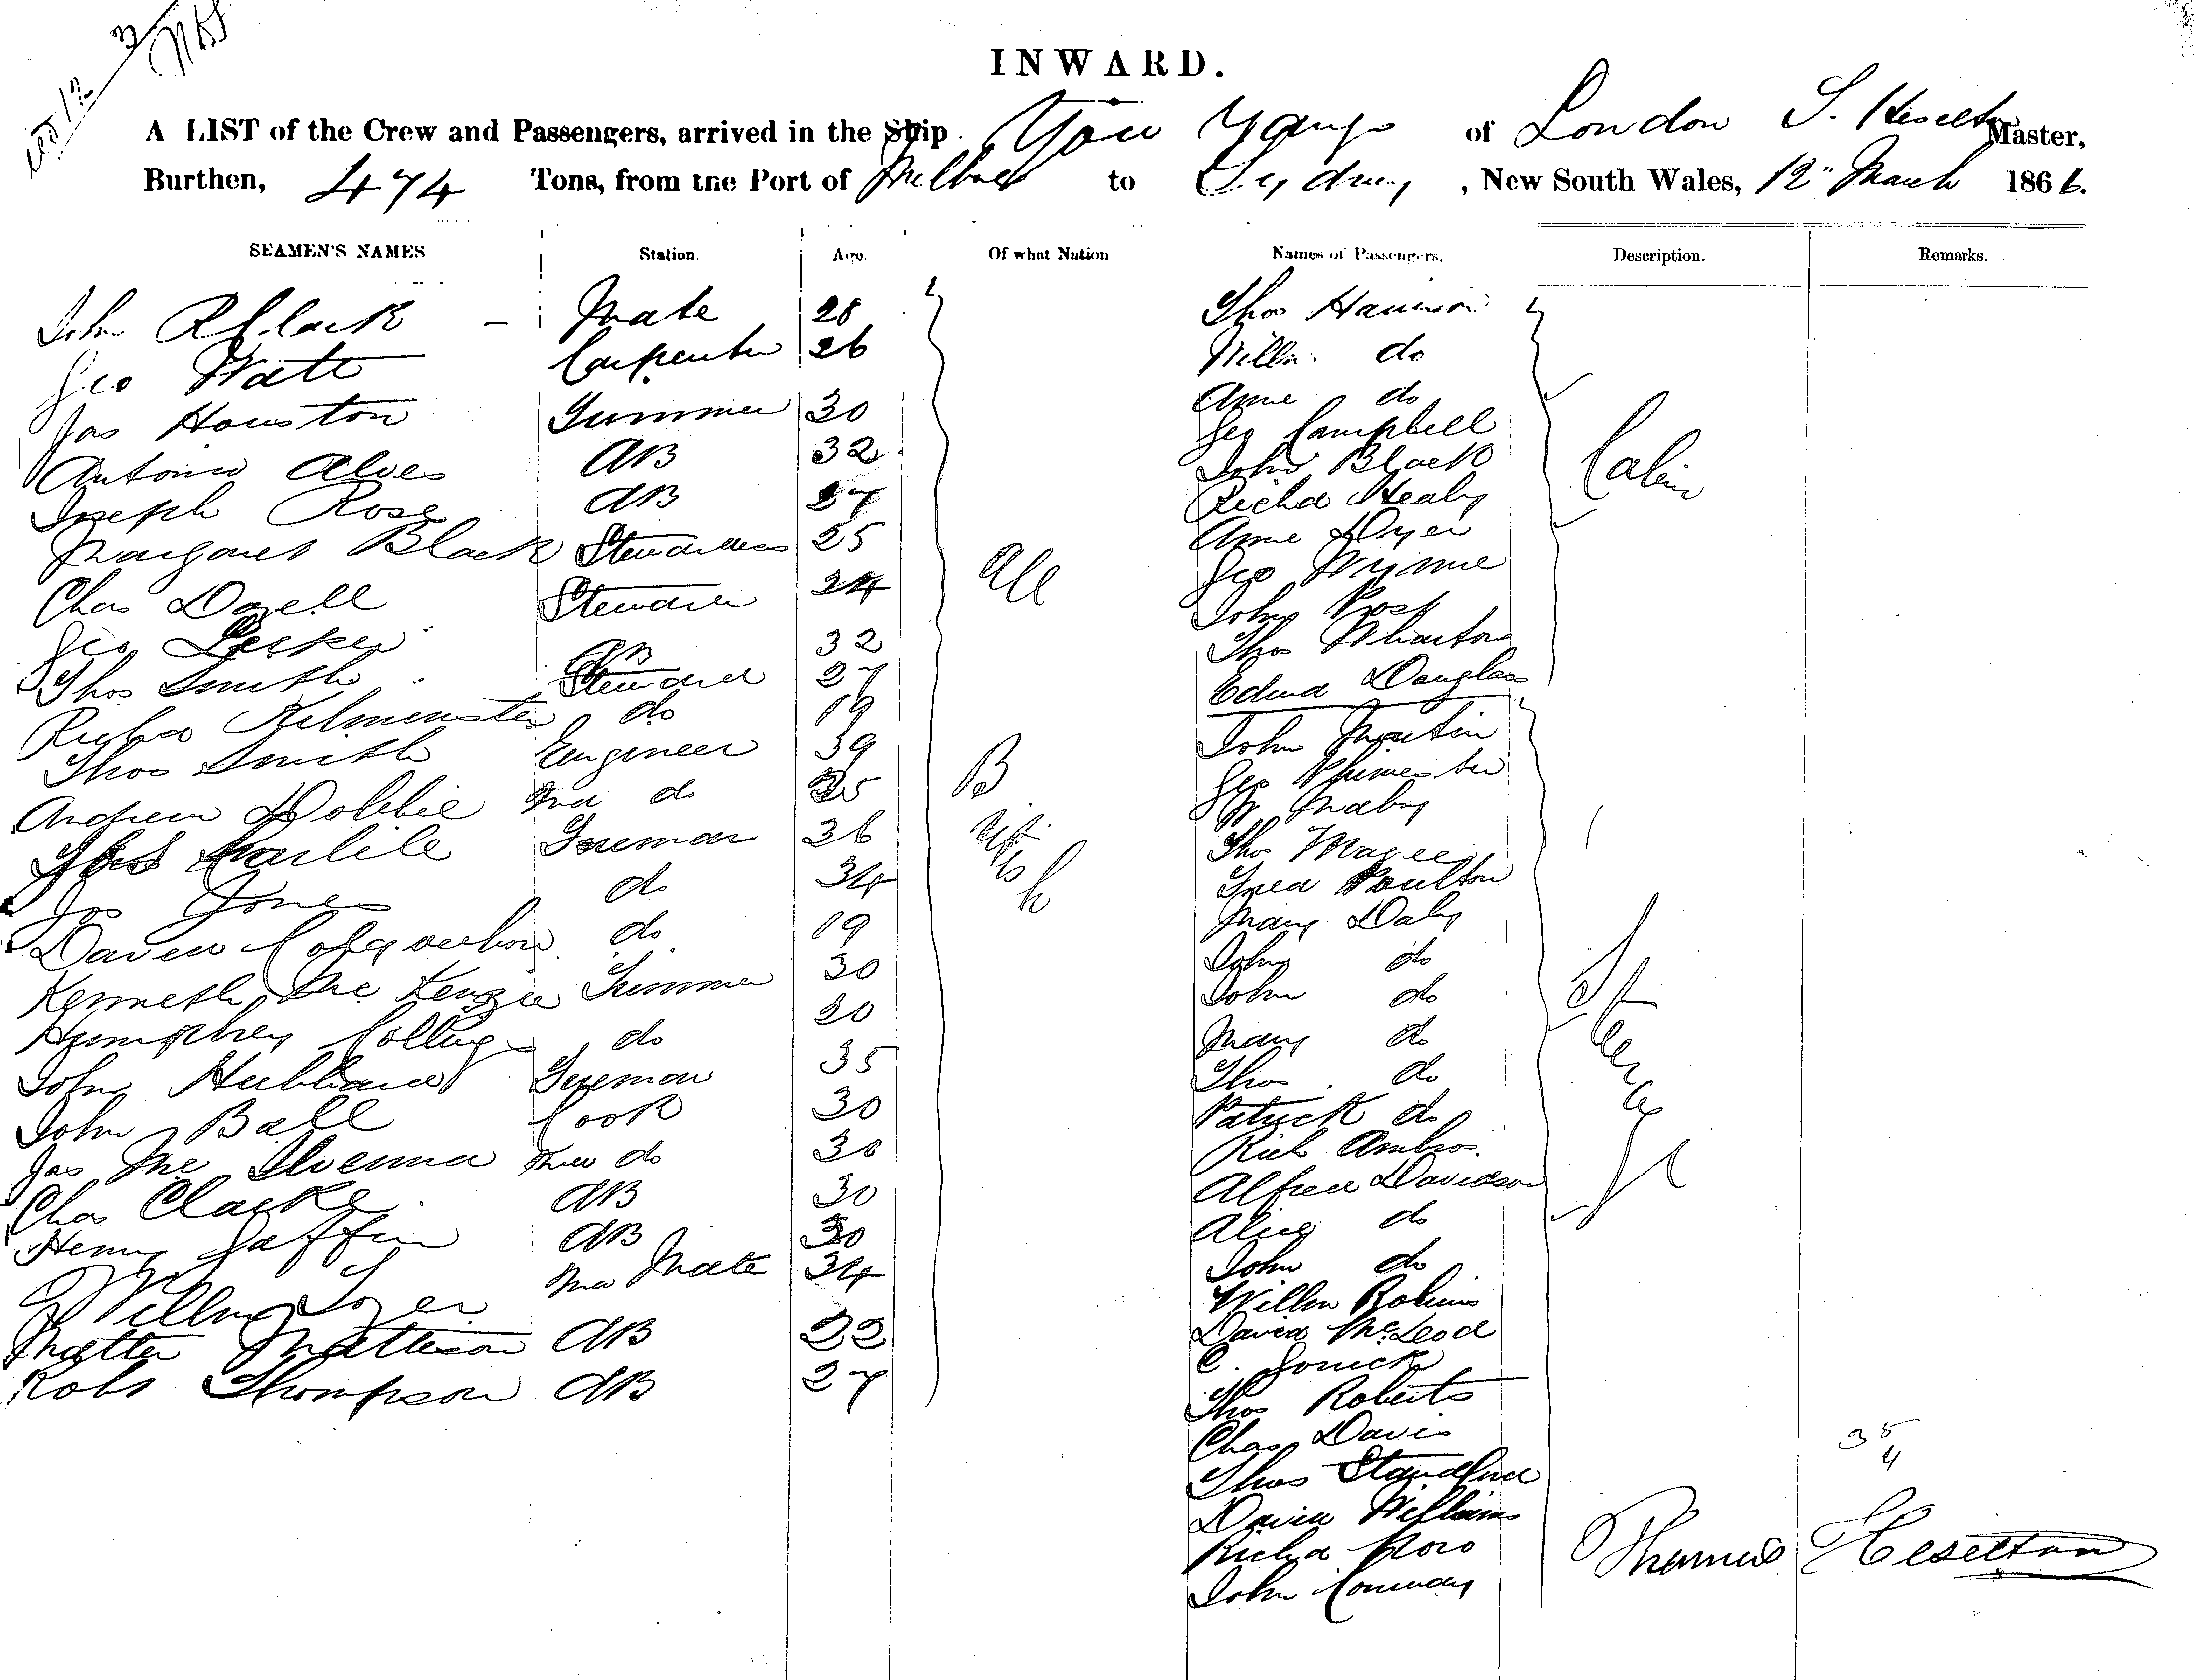 INWARD.
A LIST of the Crew and Passengers, arrived in the Ship You Yangs of London Heselton Master,
Burthen, 474 Tons, from the Port of Melbne to Sydney, New South Wales, 12" March 1866.
SEAMEN'S NAMES Station. Age. Of what Nation Names of Passengers. Description. Remarks.
John Mate 28
Geo Watt Carpenter 26
Jas Houston 30
Antonio Alves AB 32
Joseph Rose AB 27
Margaret Black Stewardess 25
Chas Dozell 24
Geo AB 32
Thos Smith Steward 27
Kilminster do 19
Thos Smith Engineer 39
Andrew Dobbie 2nd do 35
Carlile Fireman 36
Jas Jones do 34
David Colquhoun do 19
Kenneth McKenzie Trimmer 30
Humphrey Collings do 20
John Hubbard Fireman 35
John Ball Cook 30
Jas Mc do 30
Chas Clarke AB 30
Henry Jaffin AB 30
Willm 2nd Mate 34
Matteson AB 22
Robt Thompson AB 27
All
British
Thos Harrison
Willm do
Anne do
Geo Campbell
John Black
Richd Healy
Anne Dyer
Geo Wynne
John Prost
Thos Wharton
Edmd Douglas
Cabin
John Martin
Geo
W Maby
Thos Magee
Fred Poulton
Mary Daly
John do
John do
Mary do
Thos do
Patrick do
Rich Ambros.
Alfred Davidson
Alice do
John do
Willm Robins
David McLeod
C.
Thos Roberts
Chas Davis
Thos Standford
David Williams
Richd
John Conway
Steerage
35
4
Thomas Heselton